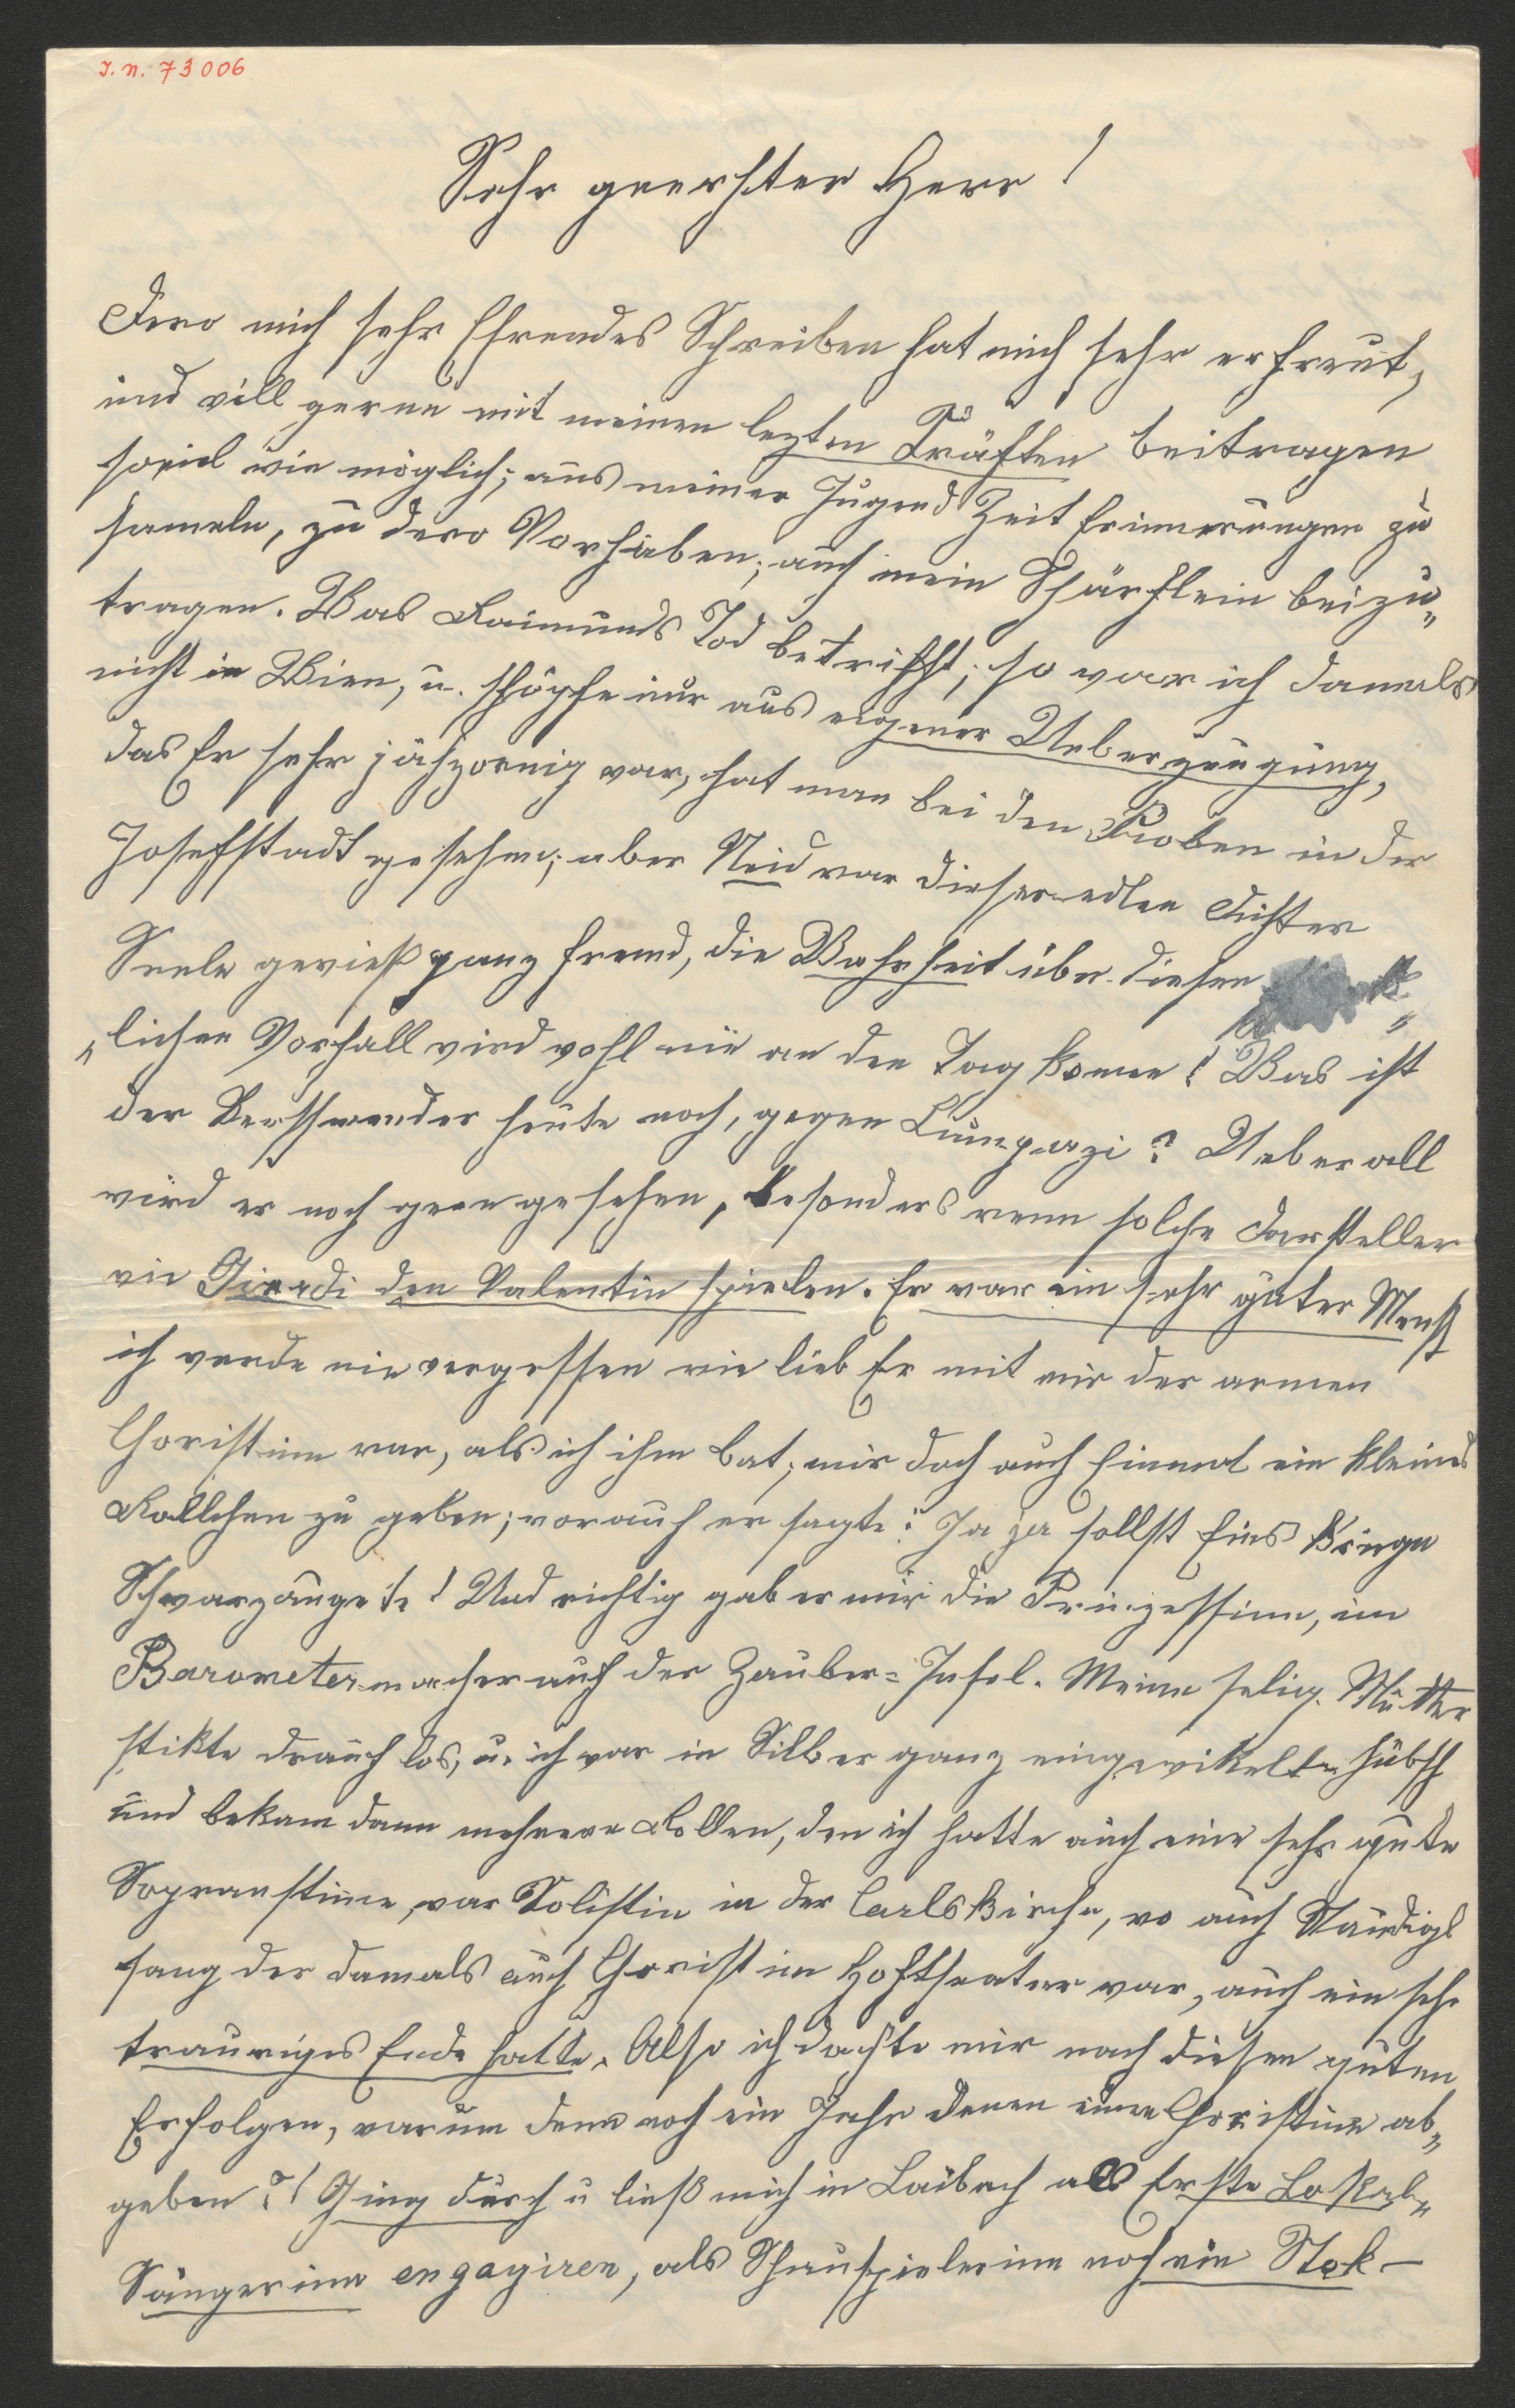 I. N. 73006
Sehr geerhter Herr!
Dero mich sehr Ehrendes Schreiben hat mich sehr erfreut,
und will gerne mit meinen lezten Kräften beitragen
soviel wie möglich; aus meiner Jugend Zeit Erinnerungen zu
sameln, zu dero Vorhaben; auch mein Schärflein beizu„
tragen. Was Raimunds Tod betrifft; so war ich damals
nicht in Wien, u. schöpfe nur aus eigener Ueberzeugung,
das Er sehr jähzornig war, hat man bei den Proben in der
Josefstadt gesehen; aber Neid war dieser edlen Dichter
Seele gewieß ganz fremd, die Wahrheit über diesen
„lichen Vorfall wird wohl nie an den Tag komen! Was ist
der Verschwender heute noch, gegen Lumpazi? Ueberall
wird er noch gern gesehen, besonders wenn solche Darsteller
wie Girardi den Valentin spielen. Er war ein sehr guter Mensch
ich werde nie vergessen wie lieb Er mit mir der armen
Choristinn war, als ich ihm bat; mir doch auch Einmal ein kleines
Rollchen zu geben; worauf er sagte: Ja ja sollst Eins kriegn
Schwarzaugete! Und richtig gab er mir die Prinzessinn, im
Barometermacher auf der Zauber=Insel. Meine selig. Mutter
stikte drauf los, u. ich war in Silber ganz eingewikelt hübsch
und bekam dann mehrere Rollen, den ich hatte auch eine sehr gute
Sopranstimme, war Solistin in der Carlskirche, wo auch Staudigl
sang der damals auch Chorist im Hoftheater war, auch ein sehr
trauriges Ende hatte. Also ich dachte mir nach diesen guten
Erfolgen, warum denn noch ein Jahr denen eine Choristinn ab„
geben?! Ging durch u ließ mich in Laibach als Erste Lokal„
Sängerinn engagiren, als Schauspielerinn noch ein Stok-